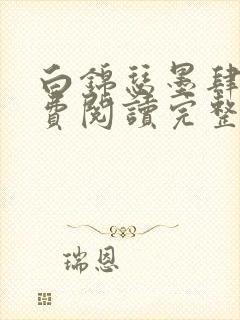 白錦瑟墨肆
費閱讀完整
瑞恩